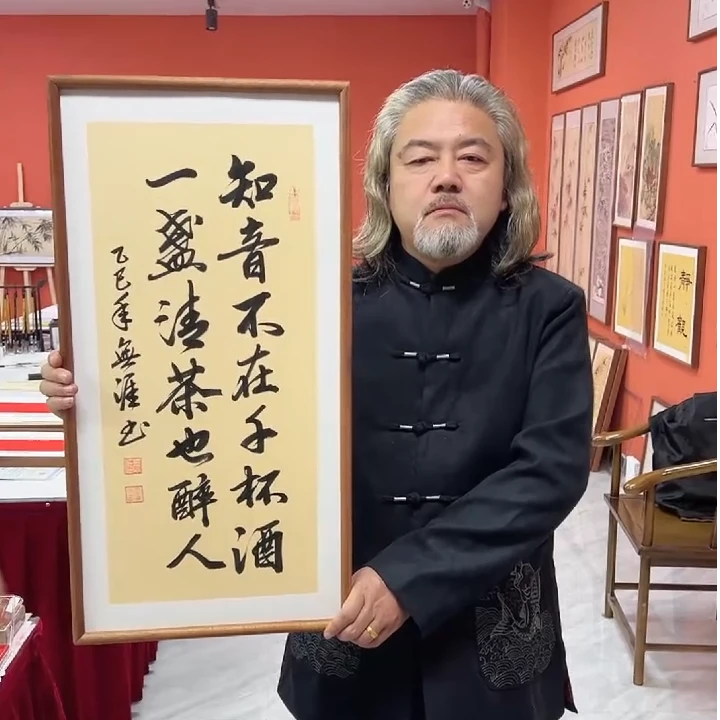 知音不在千杯酒
一盏清茶也醉人
乙巳年無涯书
静
龍